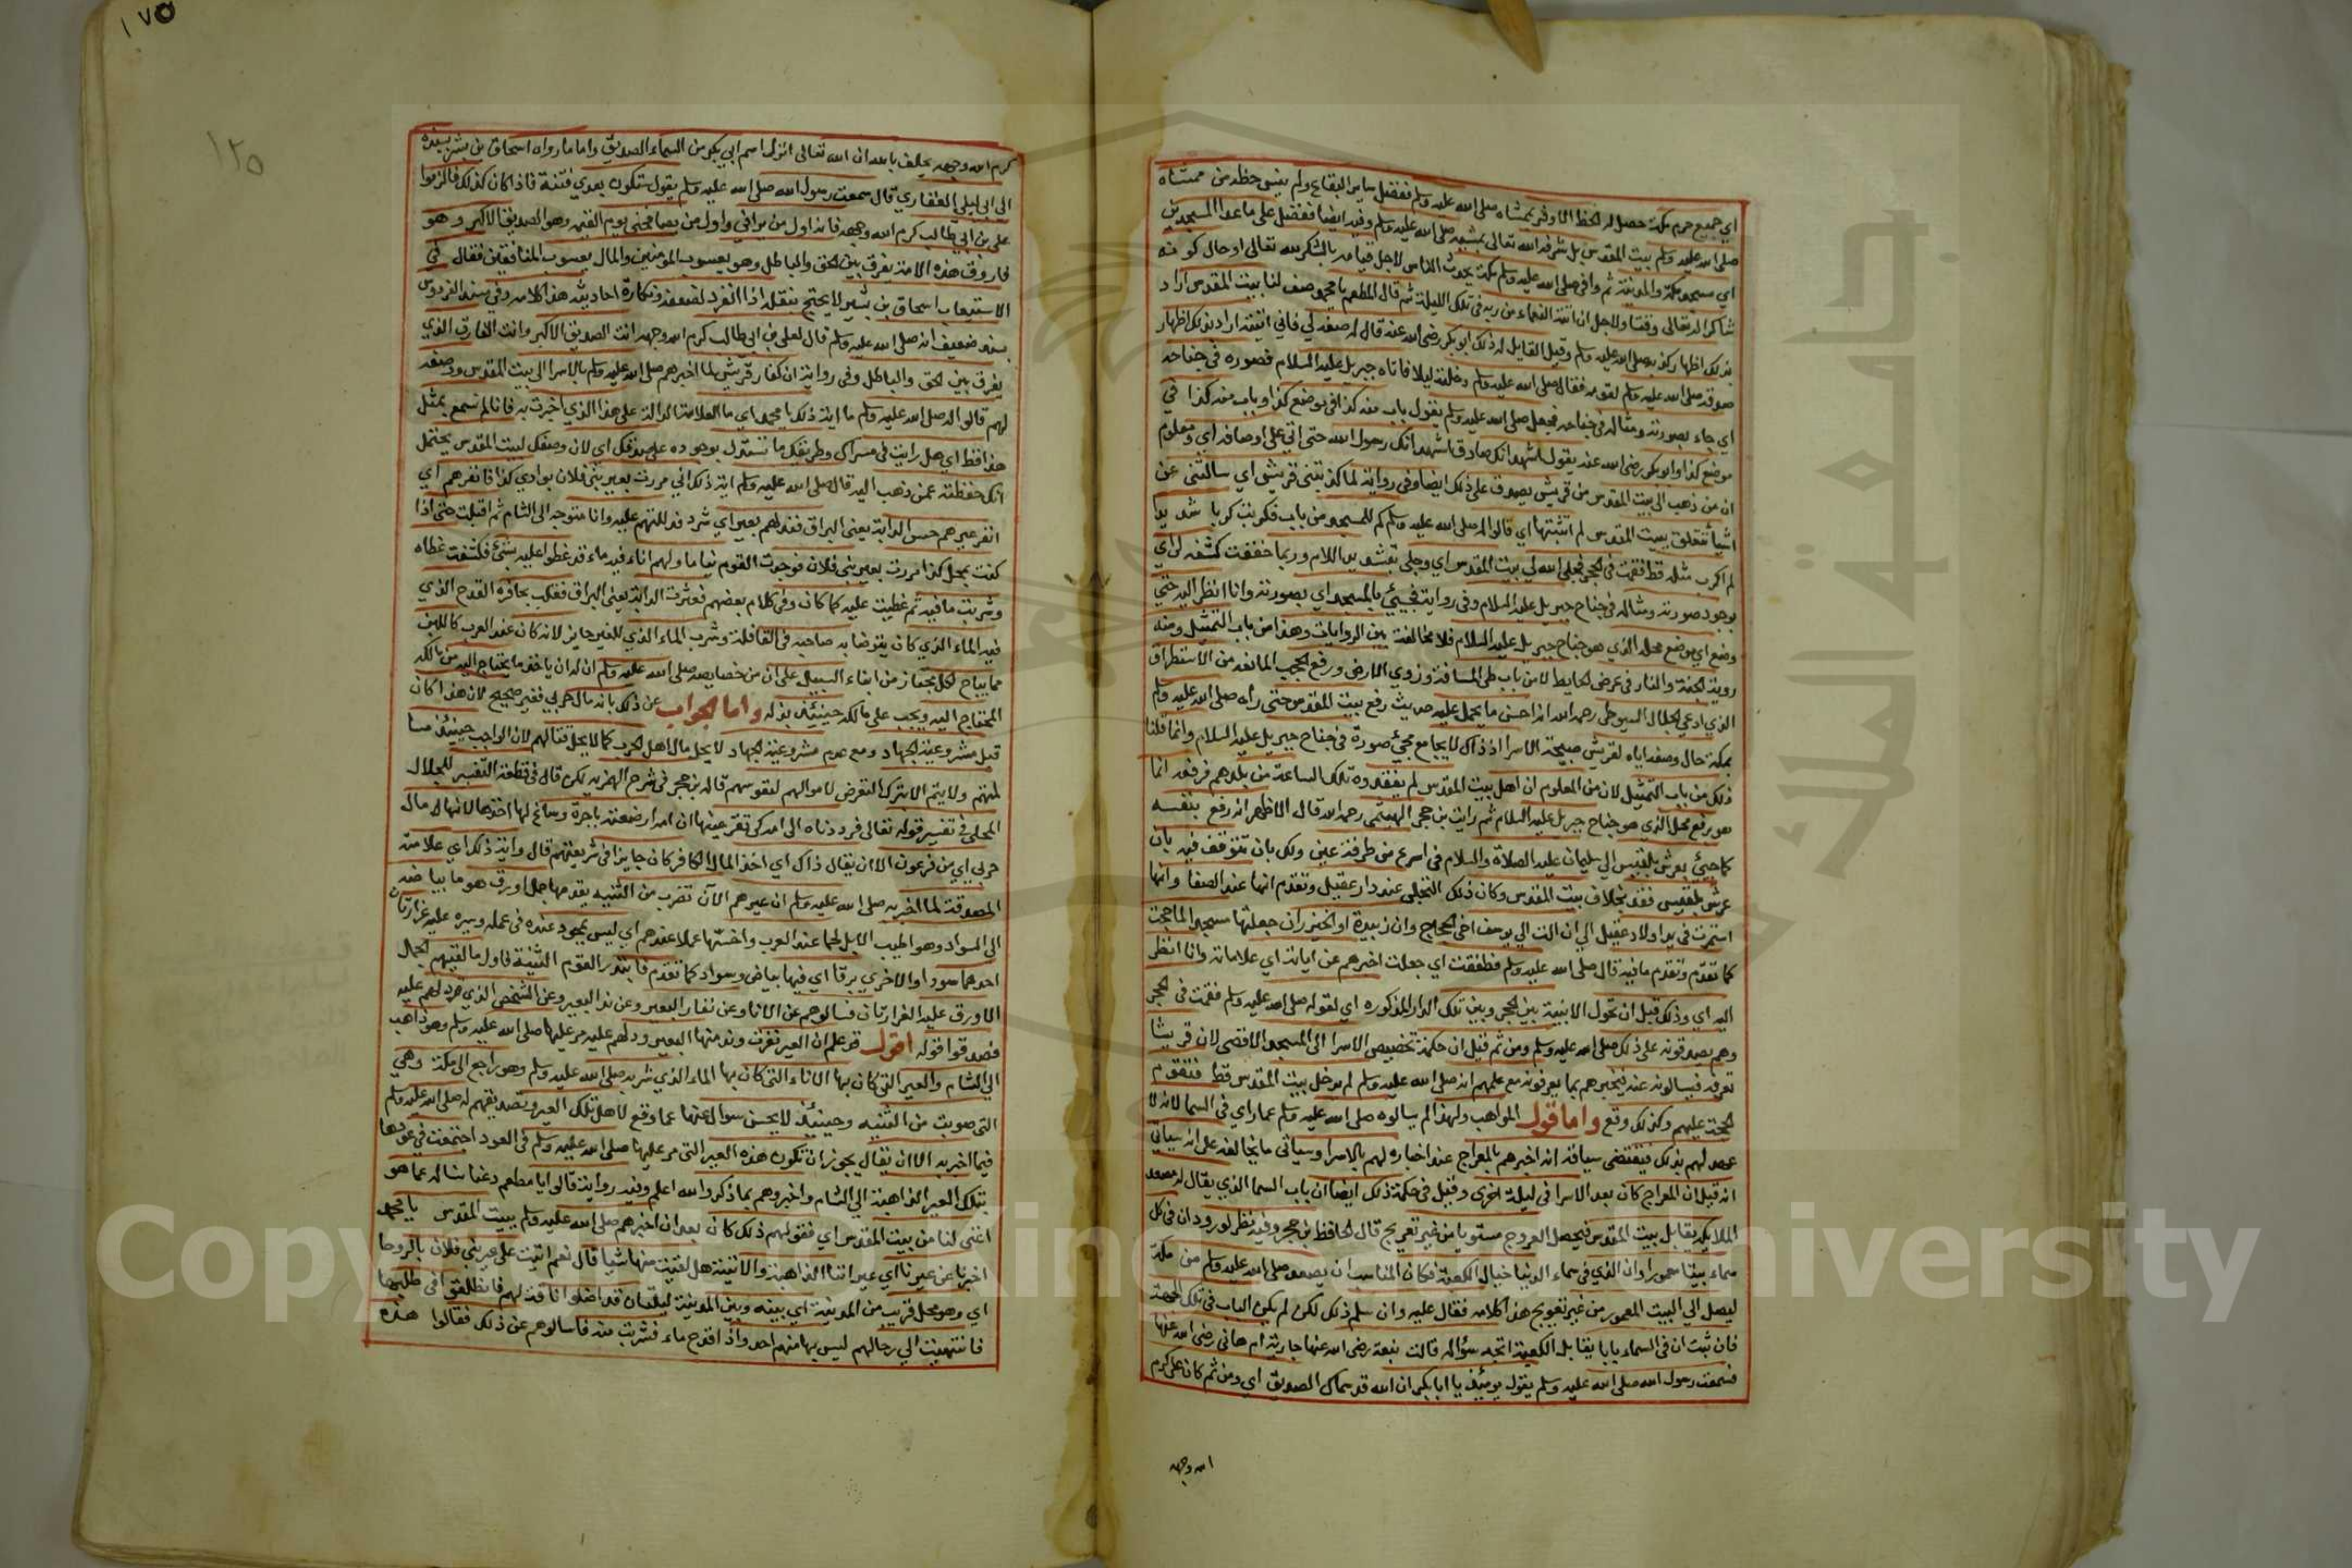 اي جميع حرم مكة حصل له الحظ الاوفر بممشاه صلى الله عليه وسلم ففضل ساير البقاع ولم ينس حظه من ممشاه
صلى الله عليه وسلم بيت المقدس بل شرفه الله تعالى بمشيه صلى الله عليه وسلم وفيه ايضا ففضل على ما عدا المسجدين
اي مسجد مكة والمدينة ثم وافى صلى الله عليه وسلم مكة يحدث الناس لاجل قيامه بالشكر لله تعالى او حال كونه
شاكرا لله تعالى وقتا ولاجل ان انته النعماء من ربه في تلك الليلة ثم قال المطعم يا محمد صف لنا بيت المقدس اراد
بذلك اظهار كذبه صلى الله عليه وسلم وقيل القايل له ذلك ابو بكر رضي الله عنه قال له صفه لي فاني اتيته اراد بذلك اظهار
صدقه صلى الله عليه وسلم لقومه فقال صلى الله عليه وسلم دخلته ليلا فاتاه جبريل عليه السلام فصوره في جناحه
اي جاء بصورته ومثاله في جناحه فجعل صلى الله عليه وسلم يقول باب منه كذا في موضع كذا وباب منه كذا في
موضع كذا وابو بكر رضي الله عنه يقول اشهد انك صادق اشهد انك رسول الله حتى اتى على اوصافه اي ومعلوم
ان من ذهب الى بيت المقدس من قريش يصدق على ذلك ايضا وفي رواية لما كذبتني قريش اي سالتني عن
اشيا تتعلق ببيت المقدس لم اثبتها اي قالوا له صلى الله عليه وسلم كم للمسجد من باب فكربت كربا شديدا
لم اكرب مثله قط فقمت في الحجر فجلى الله لي بيت المقدس اي وجلى بتشديد اللام وربما خففت كشفه لي اي
بوجود صورته ومثاله في جناح جبريل عليه السلام وفي رواية فجيئ بالمسجد اي بصورته وانا انظر اليه حتى
وضع اي بوضع محله الذي هو جناح جبريل عليه السلام فلا مخالفة بين الروايات وهذا من باب التمثيل ومنه
روية الجنة والنار في عرض الحايط لا من باب طي المسافة وزوي الارض ورفع الحجب المانعة من الاستطراق
الذي ادعى الجلال السيوطي رحمه الله انه احسن ما يحمل عليه حديث رفع بيت المقدس حتى راه صلى الله عليه وسلم
بمكة حال وصفه اياه لقريش صبيحة الاسرا اذ ذاك لا يجامع مجيئ صورة في جناح جبريل عليه السلام وانما قلنا
ذلك من باب التمثيل لان من المعلوم ان اهل بيت المقدس لم يفقدوه تلك الساعة من بلدهم فرفعه انما
هو برفع محله الذي هو جناح جبريل عليه السلام ثم رايت بن حجر الهيتمي رحمه الله قال الاظهر انه رفع بنفسه
كما جيئ بعرش بلقيس الي سليمان عليه الصلاة والسلام في اسرع من طرفة عين ولك بان تتوقف فيه بان
عرش بلقيس فقد بخلاف بيت المقدس وكان ذلك التجلي عند دار عقيل وتقدم انها عند الصفا وانها
استمرت في يد اولاد عقيل الي ان الت الي يوسف اخي الحجاج وان زبيدة او الخيزران جعلتها مسجدا لما حجت
كما تقدم وتقدم ما فيه قال صلى الله عليه وسلم فطفقت اي جعلت اخبرهم عن اياته اي علاماته وانا انظر
اليه اي وذلك قبل ان تحول الابنية بين الحجر وبين تلك الدار المذكوره اي لقوله صلى الله عليه وسلم فقمت في الحجر
وهم يصدقونه على ذلك صلى الله عليه وسلم ومن ثم قيل ان حكمة تخصيص الاسرا الى المسجد الاقصى لان قريشا
تعرفه فيسالونه عنه فيخبرهم بما يعرفونه مع علمهم انه صلى الله عليه وسلم لم يدخل بيت المقدس قط فتقوم
الحجة عليهم وكذلك وقع واما قول المواهب ولهذا لم يسالوه صلى الله عليه وسلم عما راي في السما لانه لا
عهد لهم بذلك فيقتضي سياقه انه اخبرهم بالمعراج عند اخباره لهم بالاسرا وسياتي ما يخالفه على انه سياتي
انه قيل ان المعراج كان بعد الاسرا في ليلة اخرى وقيل في حكمة ذلك ايضا ان باب السما الذي يقال له مصعد
الملايكه يقابل بيت المقدس فيحصل العروج مستويا من غير تعريج قال الحافظ بن حجر وفيه نظر لورود ان في كل
سماء بيتا معمورا وان الذي في سماء الدنيا حيال الكعبة فكان المناسب ان يصعد صلى الله عليه وسلم من مكة
ليصل الي البيت المعمور من غير تعويج هذا كلامه فقال عليه وان سلم ذلك لكن لم يكن الباب في تلك الجهة
فان ثبت ان في السماء بابا يقابل الكعبة اتجه سؤاله قالت نبعة رضي الله عنها جارية ام هاني رضي الله عنها
فسمعت رسول الله صلى الله عليه وسلم يقول يومئذ يا ابا بكر ان الله قد سماك الصديق اي ومن ثم كان علي كرم
الله وجهه
١٧٥
١٢٥
كرم الله وجهه يحلف بالله ان الله تعالى انزل اسم ابي بكر من السماء الصديق واما ما رواه اسحاق بن بشر بسنده
الى ابي ليلى الغفاري قال سمعت رسول الله صلى الله عليه وسلم يقول ستكون بعدي فتنة فاذا كان كذلك فالزموا
علي بن ابي طالب كرم الله وجهه فانه اول من يراني واول من يصافحني يوم القيمة وهو الصديق الاكبر وهو
فاروق هذه الامة يفرق بين الحق والباطل وهو يعسوب المومنين والمال يعسوب المنافقين فقال في
الاستيعاب اسحاق بن بشير لا يحتج بنقله اذا انفرد لضعفه ونكارة احاديثه هذا كلامه وفي مسند الفردوس
بسند ضعيف انه صلى الله عليه وسلم قال لعلي بن ابي طالب كرم الله وجهه انت الصديق الاكبر وانت الفارق الذي
يفرق بين الحق والباطل وفي رواية ان كفار قريش لما اخبرهم صلى الله عليه وسلم بالاسرا الى بيت المقدس ووصفه
لهم قالوا له صلى الله عليه وسلم ما اية ذلك يا محمد اي ما العلامة الدالة على هذا الذي اخبرت به فانا لم نسمع بمثل
هذا قط اي هل رايت في مسراك وطريقك ما نستدل بوجوده على صدقك اي لان وصفك لبيت المقدس يحتمل
انك حفظته عمن ذهب اليه قال صلى الله عليه وسلم اية ذلك اني مررت بعير بني فلان بوادي كذا فانفرهم اي
انفر عيرهم حس الدابة يعني البراق فند لهم بعير اي شرد فدللتهم عليه وانا متوجه الى الشام ثم اقبلت حتى اذا
كنت بمحل كذا مررت بعير بني فلان فوجدت القوم نياما ولهم اناء فيه ماء قد غطوا عليه بشئ فكشفت غطاه
وشربت ما فيه ثم غطيت عليه كما كان وفي كلام بعضهم فعثرت الدابة يعني البراق فقلب بحافره القدح الذي
فيه الماء الذي كان يتوضا به صاحبه في القافلة وشرب الماء الذي للغير جايز لانه كان عند العرب كاللبن
مما يباح لكل مجتاز من ابناء السبيل على ان من خصايصه صلى الله عليه وسلم ان له ان ياخذ ما يحتاج اليه من مالكه
المحتاج اليه ويجب على مالكه حينيئذ بذله واما الجواب عن ذلك بانه مال حربي فغير صحيح لان هذا كان
قبل مشروعية الجهاد ومع عدم مشروعية الجهاد لا يحل مال اهل الحرب كما لا يحل قتالهم لان الواجب حينيئذ مسا
لمتهم ولا يتم الا بترك التعرض لاموالهم لنفوسهم قاله بن حجر في شرح الهمزيه لكن قال في قطعة التفسير للجلال
المحلي في تفسير قوله تعالى فرددناه الى امه كي تقر عينها ان امه ارضعته باجرة وساغ لها اخذها لانها مال
حربي اي من فرعون الا ان يقال ذاك اي اخذ المال الكافر كان جايزا في شريعتهم قال واية ذلك اي علامته
المصدقة لما اخبر به صلى الله عليه وسلم ان عيرهم الآن تقرب من الثنيه يقدمها جمل اورق هو ما بياضه
الى السواد وهو اطيب الابل لحما عند العرب واخسها عملا عندهم اي ليس بمحمود عنده في عمله وسيره عليه غرارتان
احدهما سوداوالاخري برقا اي فيها بياض وسواد كما تقدم فابتدر القوم الثنية فاول ما لقيهم الجمال
الاورق عليه الغرارتان فسالوهم عن الانا وعن نفار البعير وعن ند البعير وعن الشخص الذي دلهم عليه
فصدقوا قوله اقول قد علم ان العير نفرت وند منها البعير ودلهم عليه مر عليها صلى الله عليه وسلم وهو ذاهب
الي الشام والعير التي كان بها الاناء التي كان بها الماء الذي شربه صلى الله عليه وسلم وهو راجع الى مكة وهي
التي صوبت من الثنيه وحينيئذ لا يحسن سوال عنها عما وقع لاهل تلك العير وتصديقهم له صلى الله عليه وسلم
فيما اخبر به الا ان يقال يجوز ان تكون هذه العير التي مر عليها صلى الله عليه وسلم في العود اجتمعت في عودها
بتلك العير الذاهبة الي الشام واخبروهم بما ذكر والله اعلم وفيه رواية قالوا يا مطعم دعنا نساله عما هو
اغنى لنا من بيت المقدس اي فقولهم ذلك كان بعد ان اخبرهم صلى الله عليه وسلم ببيت المقدس يا محمد
اخبرنا عن عيرنا اي عيراتنا الذاهبة والاتية هل لقيت منها شيا قال نعم اتيت على عير بني فلان بالروحا
اي وهو محل قريب من المدينة اي بينه وبين المدينة ليلتان قد اضلوا ناقة لهم فانطلقوا في طلبها
فانتهيت الي رحالهم ليس بها منهم احد واذا قدح ماء فشربت منه فاسالوهم عن ذلك فقالوا هذه
Copyright © King Saud University